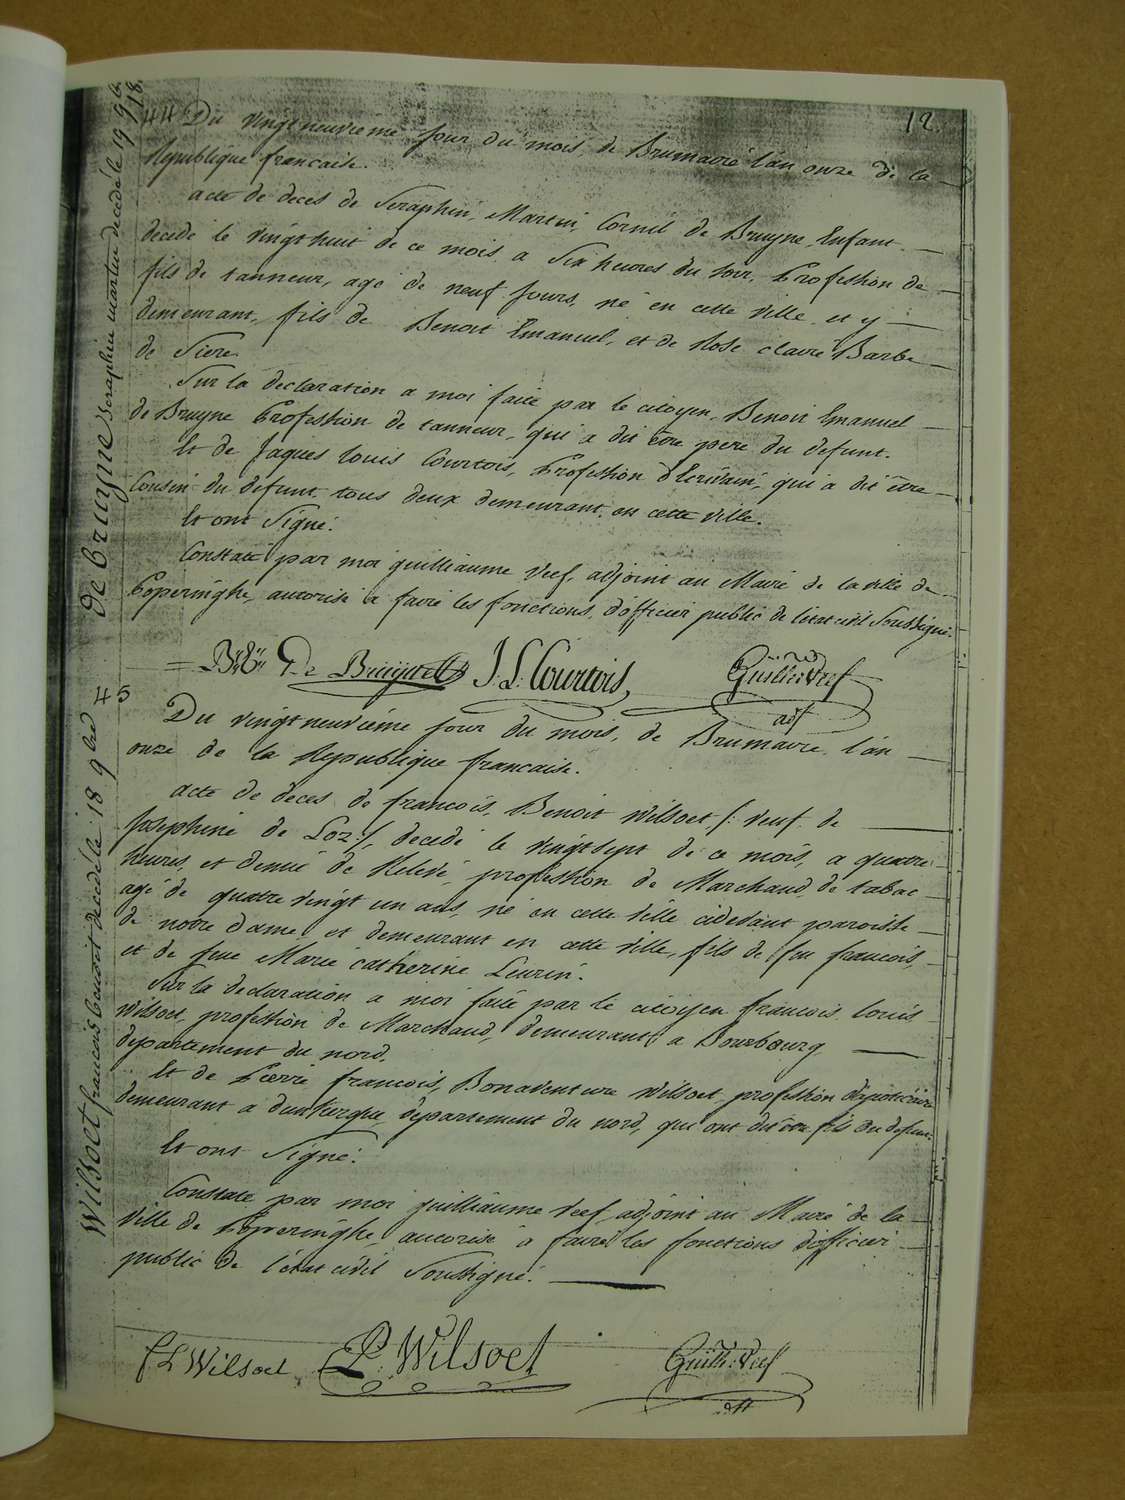 12.
44 Du vingtneuvieme jour du mois, de Brumaire l'an onze de la
Republique francaise.
acte de deces de Seraphin, Martin, Cornil de Bruyne, Enfant
decedé le vingthuit de ce mois a Six heures du soir, Profession de
fils de tanneur, agé de neuf jours, né en cette ville et y
demeurant, fils de Benoit Emanuel, et de Rose claire Barbe
de Siere.
Sur la declaration a moi faite par le citoyen, Benoit Emanuel
de Bruyne Profession de tanneur, qui a dit être pere du defunt.
Et de Jaques Louis Courtois, Profession d'Ecrivain, qui a dit être
Cousin du defunt, tous deux demeurant en cette ville.
Et ont Signé.
Constaté par moi guilliaume Veef, adjoint au Maire de la ville de
Poperinghe, autorisé a faire les fonctions, d'officier public de l'etat civil Soussigné.
De Bruyne J: L: Courtois, Guill: Veef
adjt
45
Du vingtneuvieme jour du mois, de Brumaire l'an
onze de la Republique francaise.
acte de deces de francois, Benoit Wilsoet /: veuf de
Josephine de Loz :/, decedé le vingtsept de ce mois, a quatre
heures et demie de Relevé, profession de Marchand de tabac
agé de quatre vingt un ans, né en cette ville cidevant paroisse
de notre dame et demeurant en cette ville, fils de feu francois,
et de feue Marie Catherine Leurin.
Sur la declaration a moi faite par le citoyen francois, Louis
Wilsoet, profession de Marchand, demeurant a Bourbourg
departement du nord.
Et de Pierre francois, Bonaventure Wilsoet, profession d'apoticaire
demeurant a dunkerque, departement du nord, qui ont dit être fils du defunt.
Et ont Signé.
Constaté par moi guilliaume Veef adjoint au Maire de la
Ville de Poperinghe autorisé a faire les fonctions d'officier
public de l'état civil Soussigné.
f L Wilsoet P: Wilsoet Guill: Veef
adjt
de bruyne Seraphin martin decedé le 19 9b 18
Wilsoet francois benoit decedé le 18 9bre